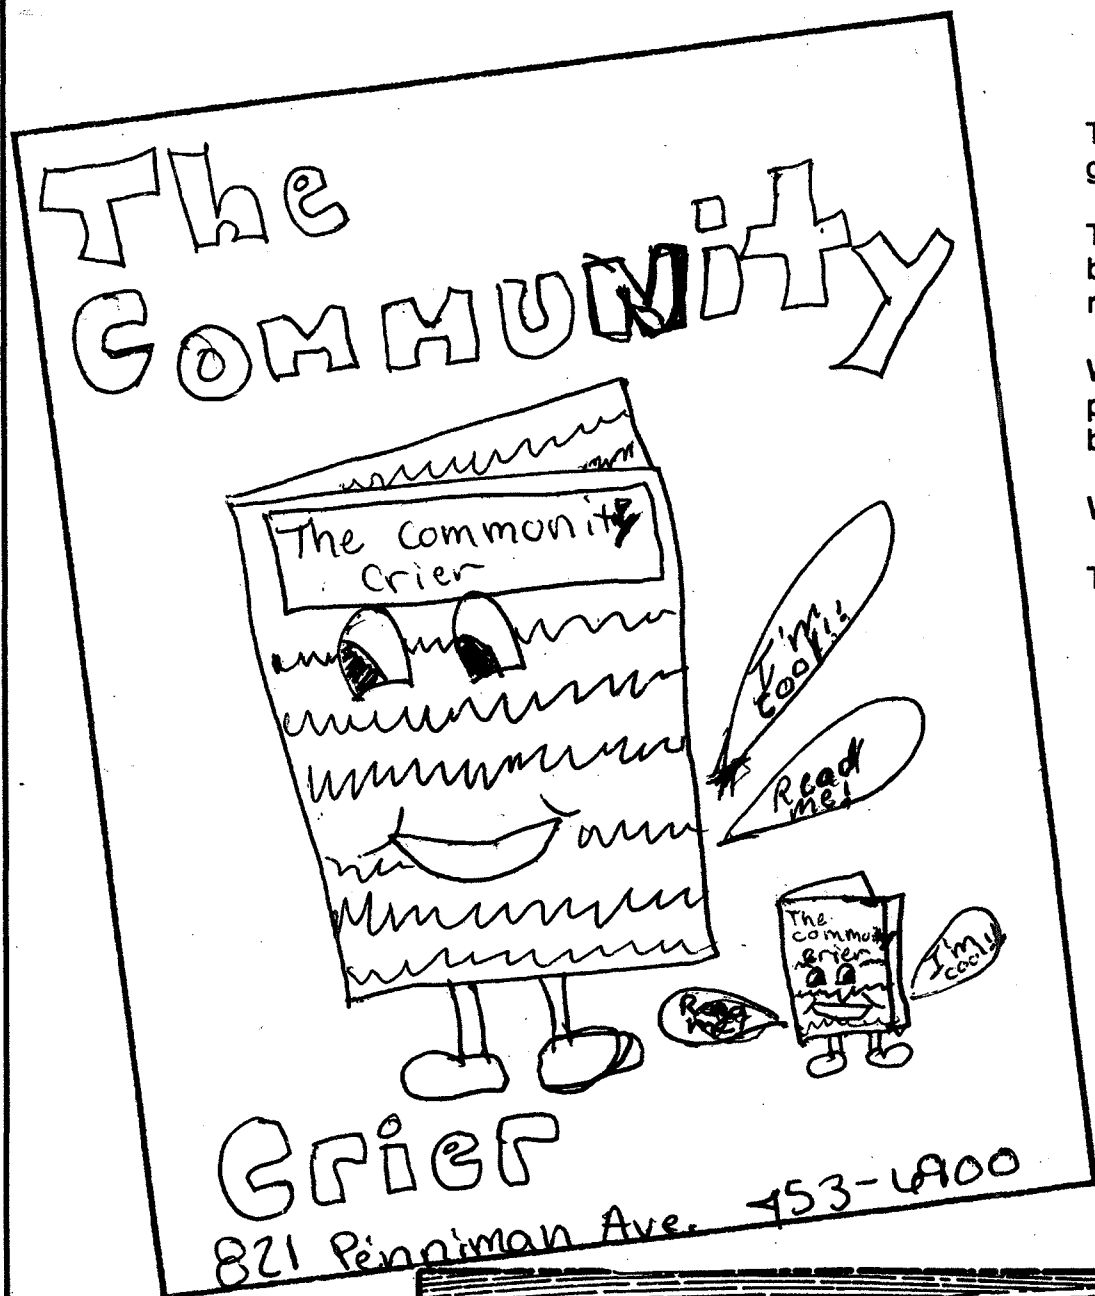 The
Community
The community
crier
I'm
cool!!
Read
me!
The
commu
crier
I'm
cool!!
Read
me!
Crier
821 Penniman Ave. 453-6900